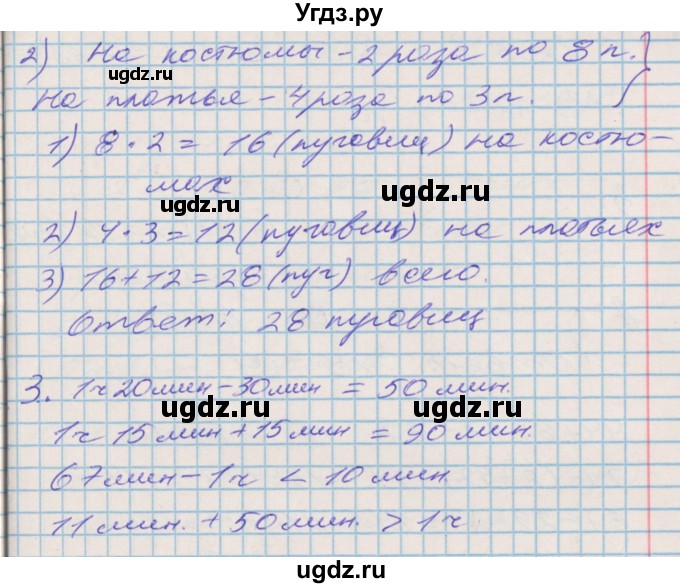 Угдз.ру
2) На костюмы – 2 раза по 8 п.
ugdz.ru
На платья – 4 раза по 3 п.
ugdz.ru
1) 8 · 2 = 16 (пуговиц) на костю-
мах
ugdz.ru
ugdz.ru
2) 4 · 3 = 12 (пуговиц) на платьях
3) 16 + 12 = 28 (пуг) всего.
ugdz.ru
Ответ: 28 пуговиц
ugdz.ru
3. 1ч 20мин – 30мин = 50 мин.
ugdz.ru
ugdz.ru
1ч 15 мин + 15 мин = 90 мин.
67мин – 1ч < 10 мин.
ugdz.ru
11 мин. + 50 мин. > 1ч
ugdz.ru
ugdz.ru